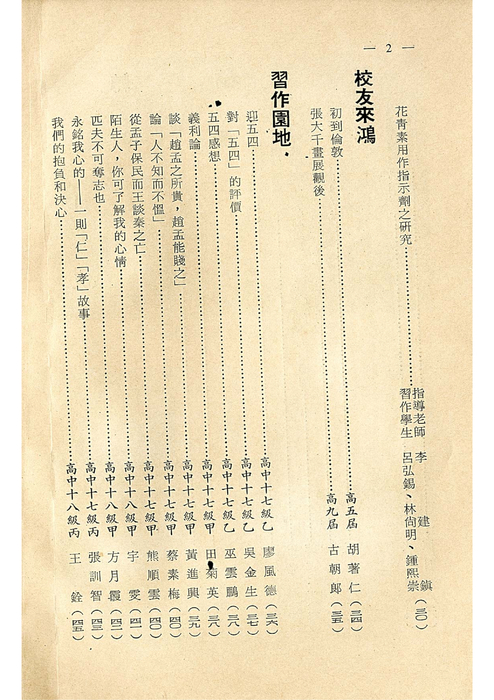 — 2 —
花青素用作指示劑之研究……指導老師 李建鎮
習作學生 呂弘錫、林尙明、鍾熙崇(三〇)
校友來鴻
初到倫敦……高五屆 胡著仁(三四)
張大千畫展觀後……高九屆 古朝郎(三五)
習作園地
迎五四……高中十七級乙 廖風德(三六)
對「五四」的評價……高中十七級乙 吳金生(三七)
五四感想……高中十七級乙 巫雲鵬(三八)
義利論……高中十七級甲 田菊英(三八)
談「趙孟之所貴，趙孟能賤之」……高中十七級甲 黃進興(三九)
論「人不知而不慍」……高中十七級甲 蔡素梅(四〇)
從孟子保民而王談秦之亡……高中十七級甲 熊順雲(四〇)
陌生人，你可了解我的心情……高中十八級甲 宇雯(四一)
匹夫不可奪志也……高中十八級甲 方月霞(四二)
永銘我心的——一則「仁」「孝」故事……高中十七級丙 張訓智(四三)
我們的抱負和決心……高中十八級丙 王銓(四五)